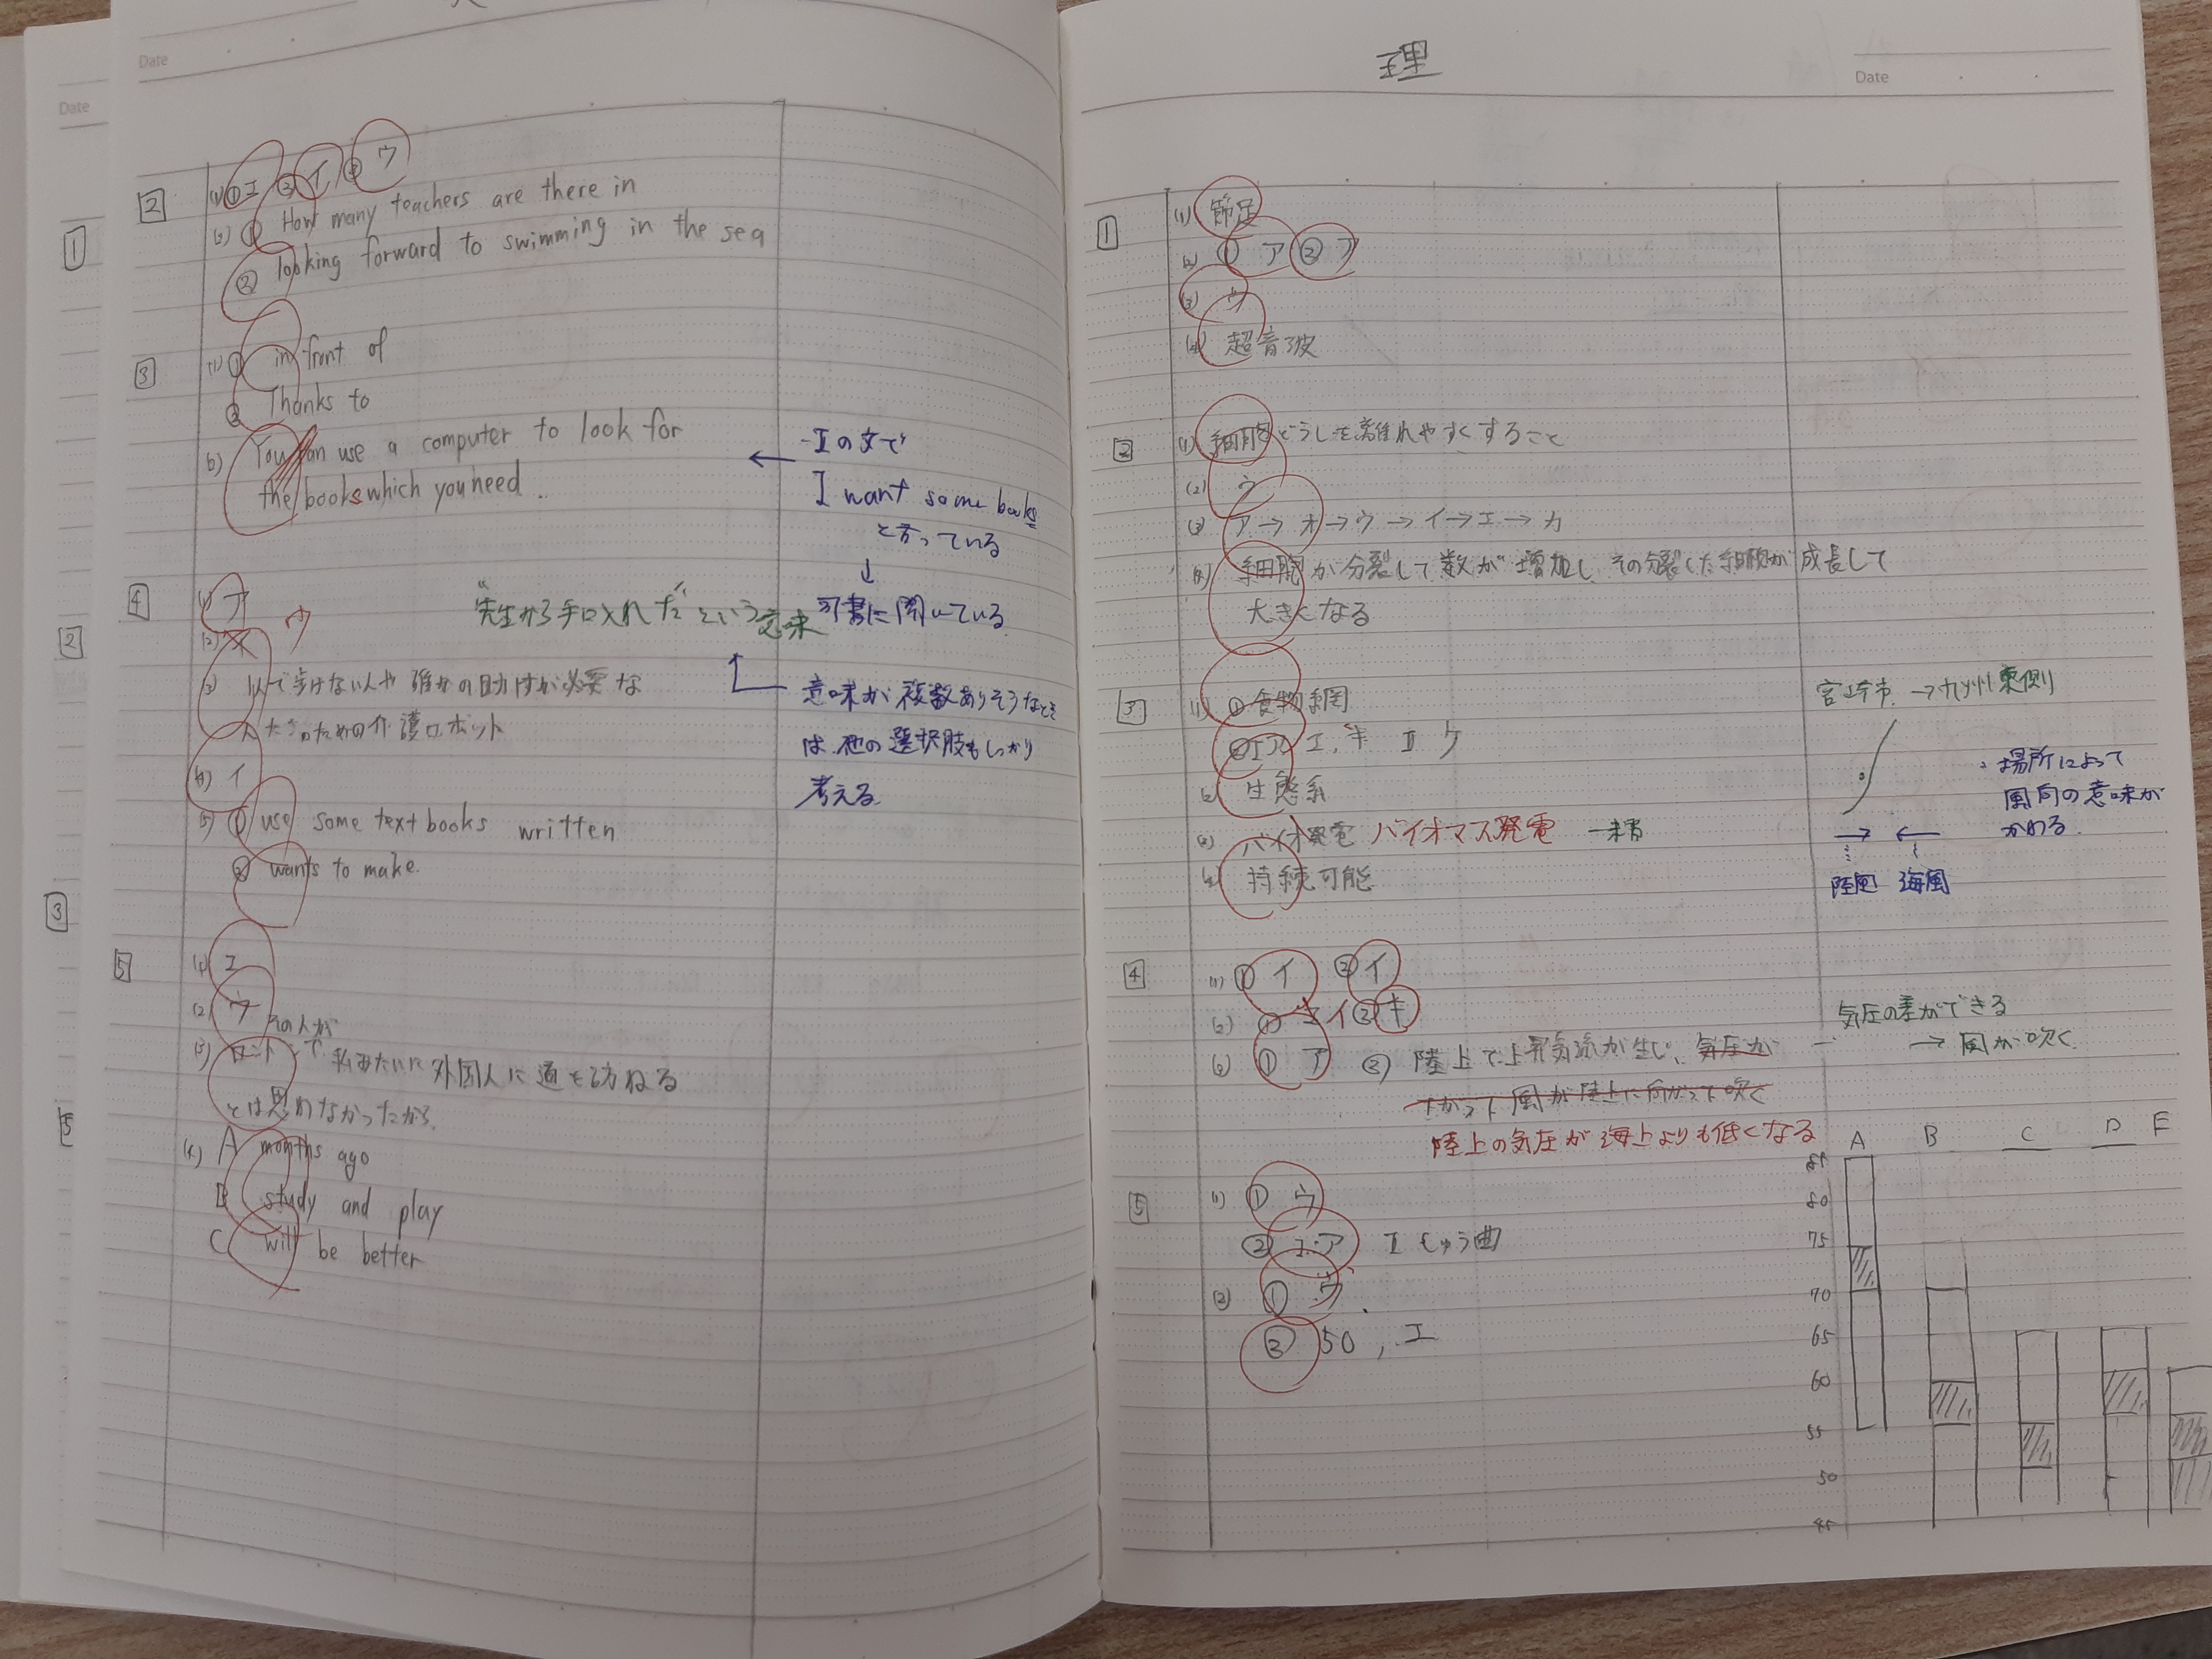 Date
Date
1
2
3
5
2
(1) ① エ ② イ ③ ウ
(2) ① How many teachers are there in
② looking forward to swimming in the sea
3
(1) ① in front of
② Thanks to
(2) You can use a computer to look for
the books which you need.
エの文で
I want some books
と言っている
↓
司書に聞いている
4
(1) ア
(2) ウ
"先生から手に入れた"という意味
(3) 1人で歩けない人や誰かの助けが必要な
人たちのための介護ロボット
意味が複数ありそうなとき
は、他の選択肢もしっかり
考える
(4) イ
(5) ① use some textbooks written
② wants to make
5
(1) エ
(2) ウ
その人が
(3) ロンドンで私みたいに外国人に道を訪ねる
とは思わなかったから
(4) A months ago
B study and play
C will be better
理
Date
1
(1) 節足
(2) ① ア ② ア
(3) ウ
(4) 超音波
2
(1) 細胞どうしを離れやすくすること
(2) ウ
(3) ア→オ→ウ→イ→エ→カ
(4) 細胞が分裂して数が増加し、その分裂した細胞が成長して
大きくなる
3
(1) ① 食物網
② I ア エ, キ II ケ
(2) 生態系
(3) バイオ発電 バイオマス発電
(4) 持続可能
宮崎市 → 九州東側
・場所によって
風向の意味が
かわる
→ ←
陸風 海風
4
(1) ① イ ② イ
(2) ① イ ② キ
(3) ① ア ② 陸上で上昇気流が生じ、気圧が
下がって風が陸上に向かって吹く
陸上の気圧が海上よりも低くなる
気圧の差ができる
→ 風が吹く
5
(1) ① ウ
② I ア II しゅう曲
(2) ① ウ
② 50, エ
A B C D E
85
80
75
70
65
60
55
50
45